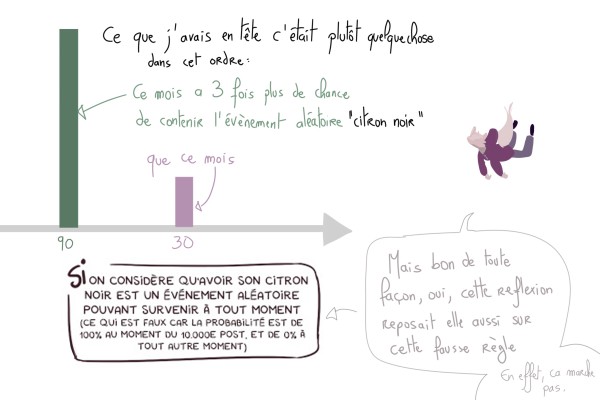 Ce que j'avais en tête c'était plutôt quelquechose
dans cet ordre:
Ce mois a 3 fois plus de chance
de contenir l'évènement aléatoire "citron noir"
que ce mois
90
30
Si on considère qu'avoir son citron
noir est un événement aléatoire
pouvant survenir à tout moment
(ce qui est faux car la probabilité est de
100% au moment du 10.000e post, et de 0% à
tout autre moment)
Mais bon de toute
façon, oui, cette reflexion
reposait elle aussi sur
cette fausse règle
En effet, ca marche
pas.